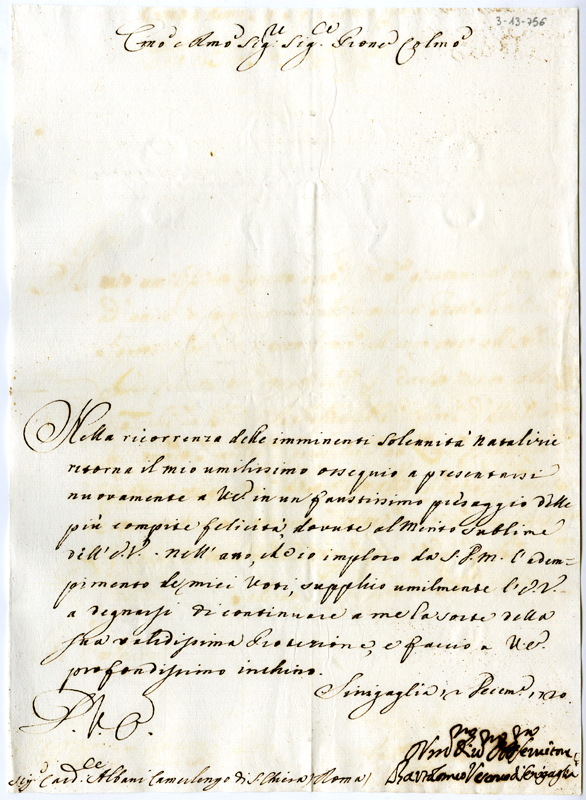 3-13-756
Emo e Rmo Sigre Sigre Prone Colmo
Nella ricorrenza delle imminenti solennità natalizie
ritorna il mio umilissimo ossequio a presentarsi
nuovamente a V.E. in un faustissimo presaggio delle
più compite felicità, dovute al Merito sublime
dell'E.V. nell'atto, che io imploro da S.D.M. l'adem=
pimento de miei Voti, supplico umilmente l'E.V.
a degnarsi di continuare a me la sorte della
sua validissima Protezione, e faccio a V.E.
profondissimo inchino.
Sinigaglia 12 Decemb. 1720
D.V.E.
Sigr Cardle Albani Camerlengo di S. Chiesa (Roma)
Bartolomeo Vescovo di Senigaglia